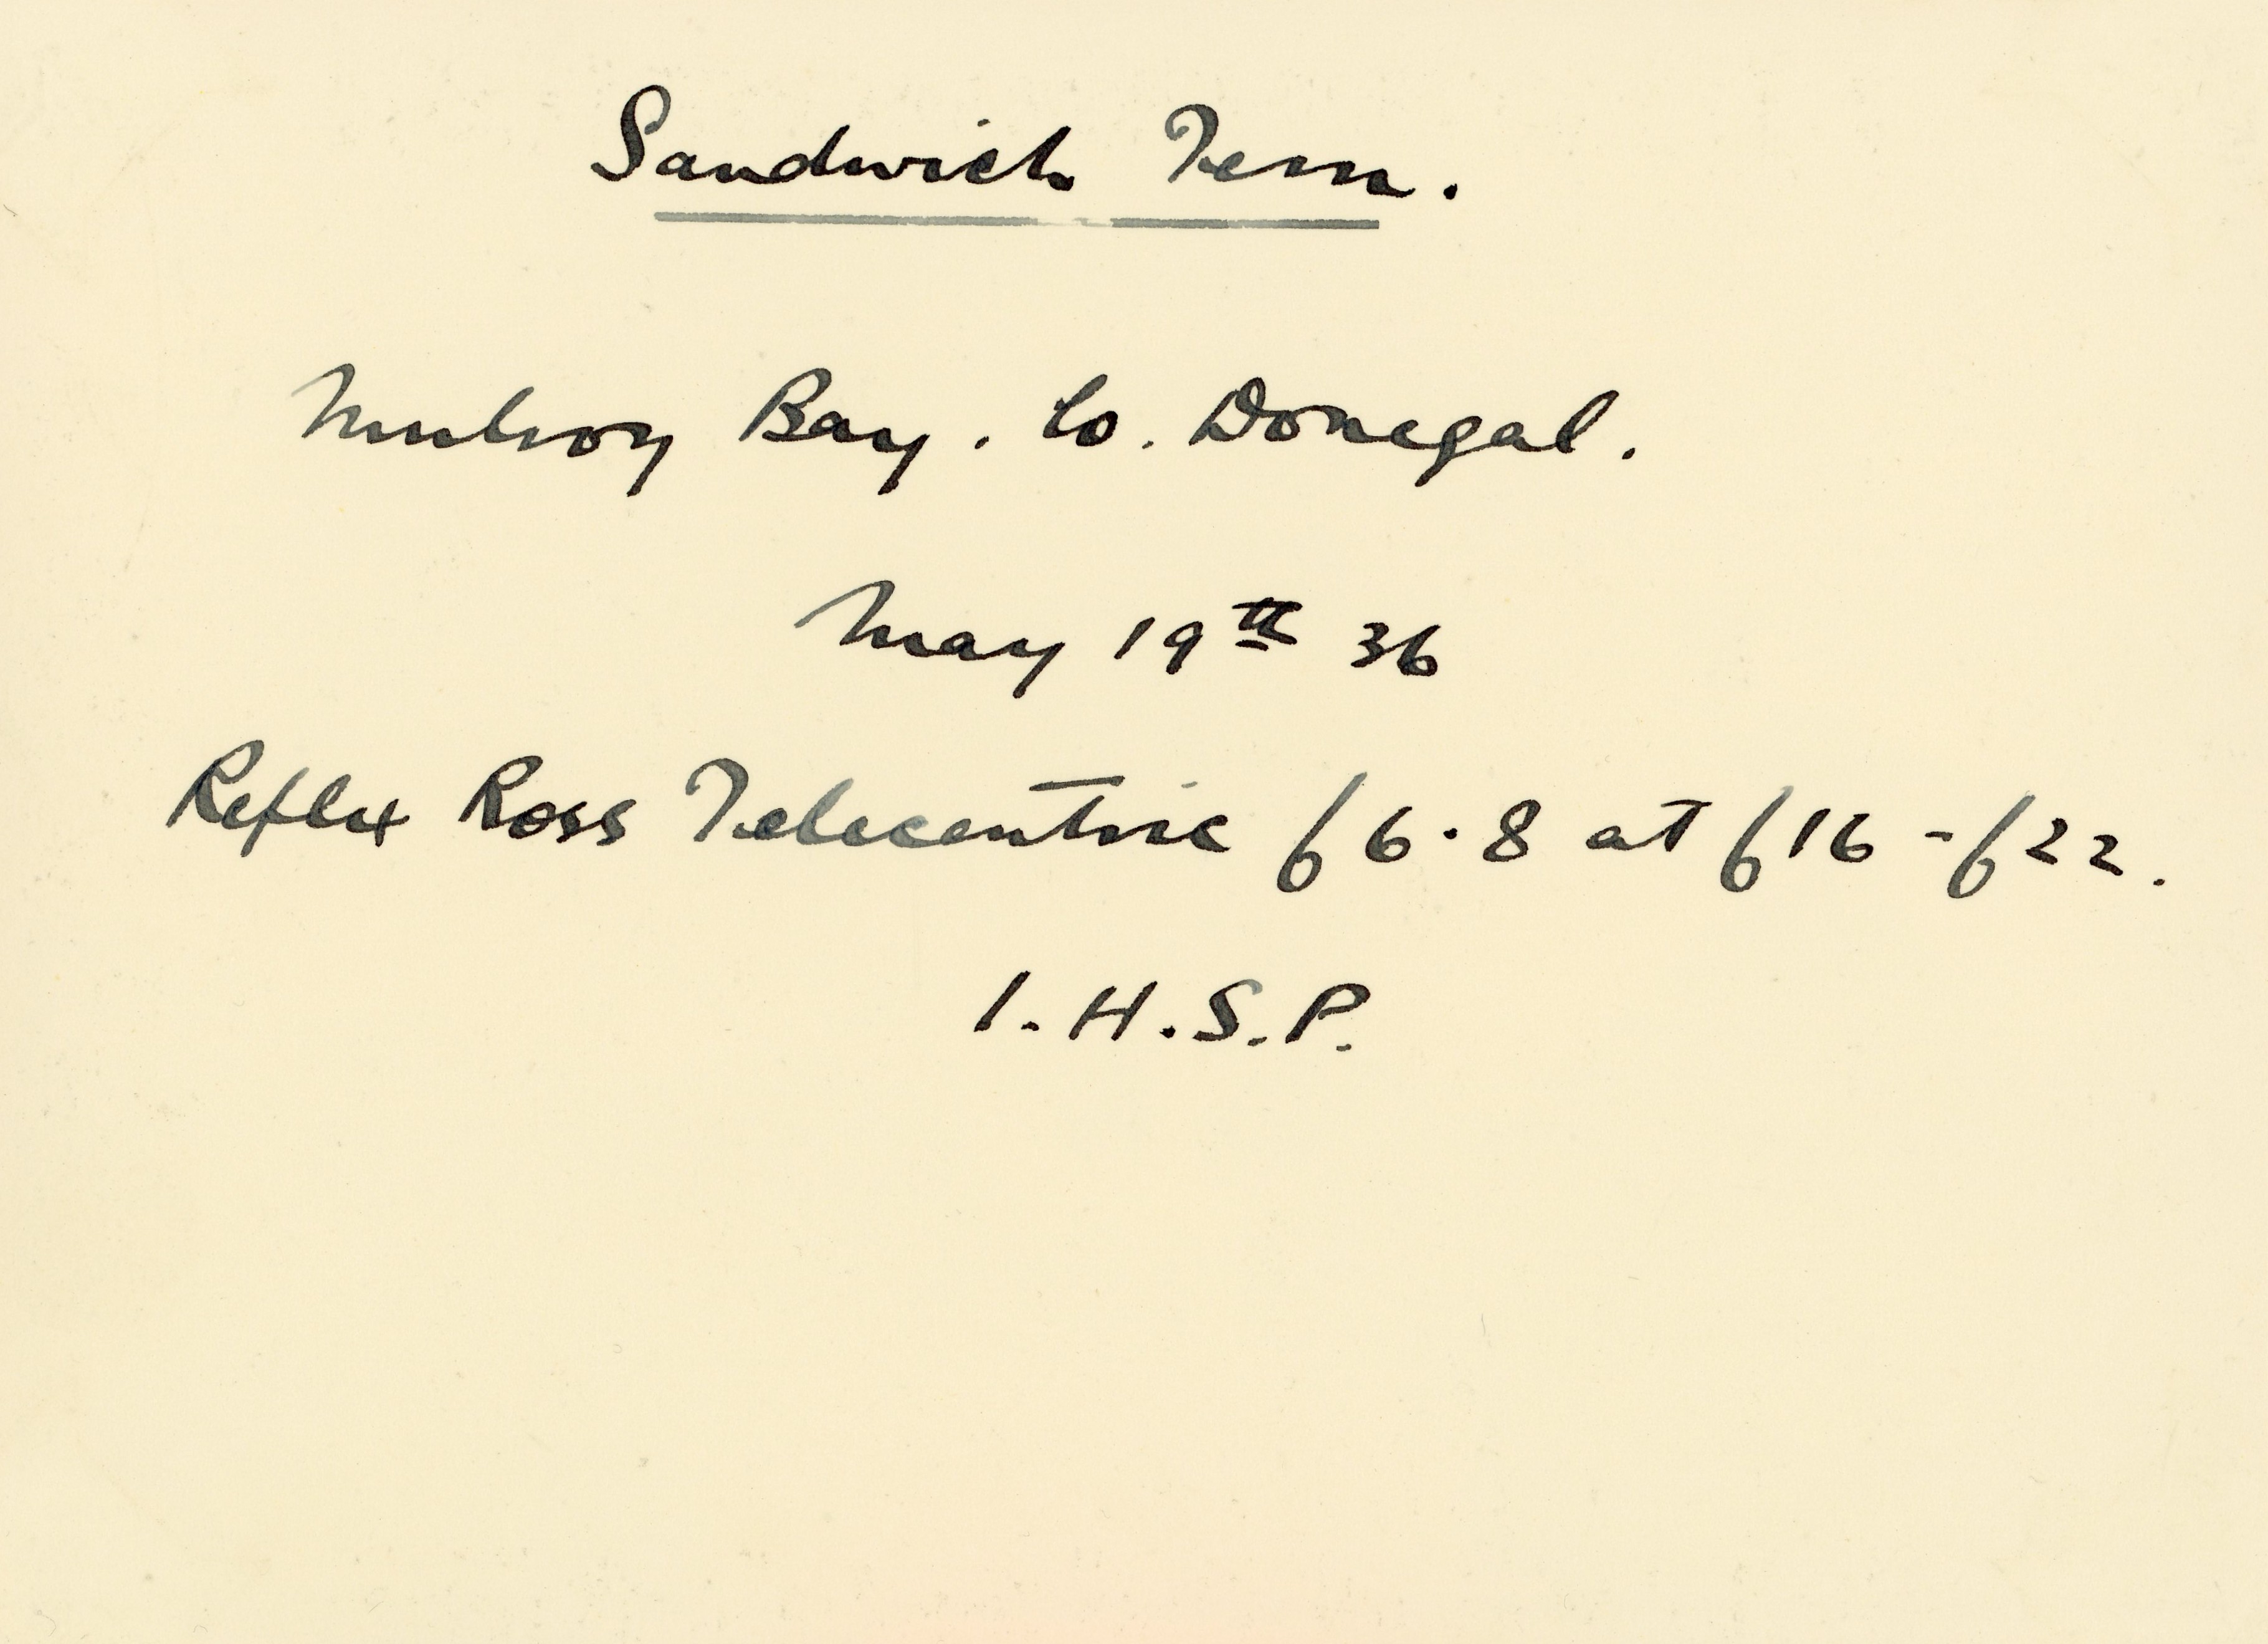 Sandwich Tern.
Mulroy Bay. Co. Donegal.
May 19th 36
Reflex Ross Telecentric f6.8 at f16 - f22.
I.H.S.P.